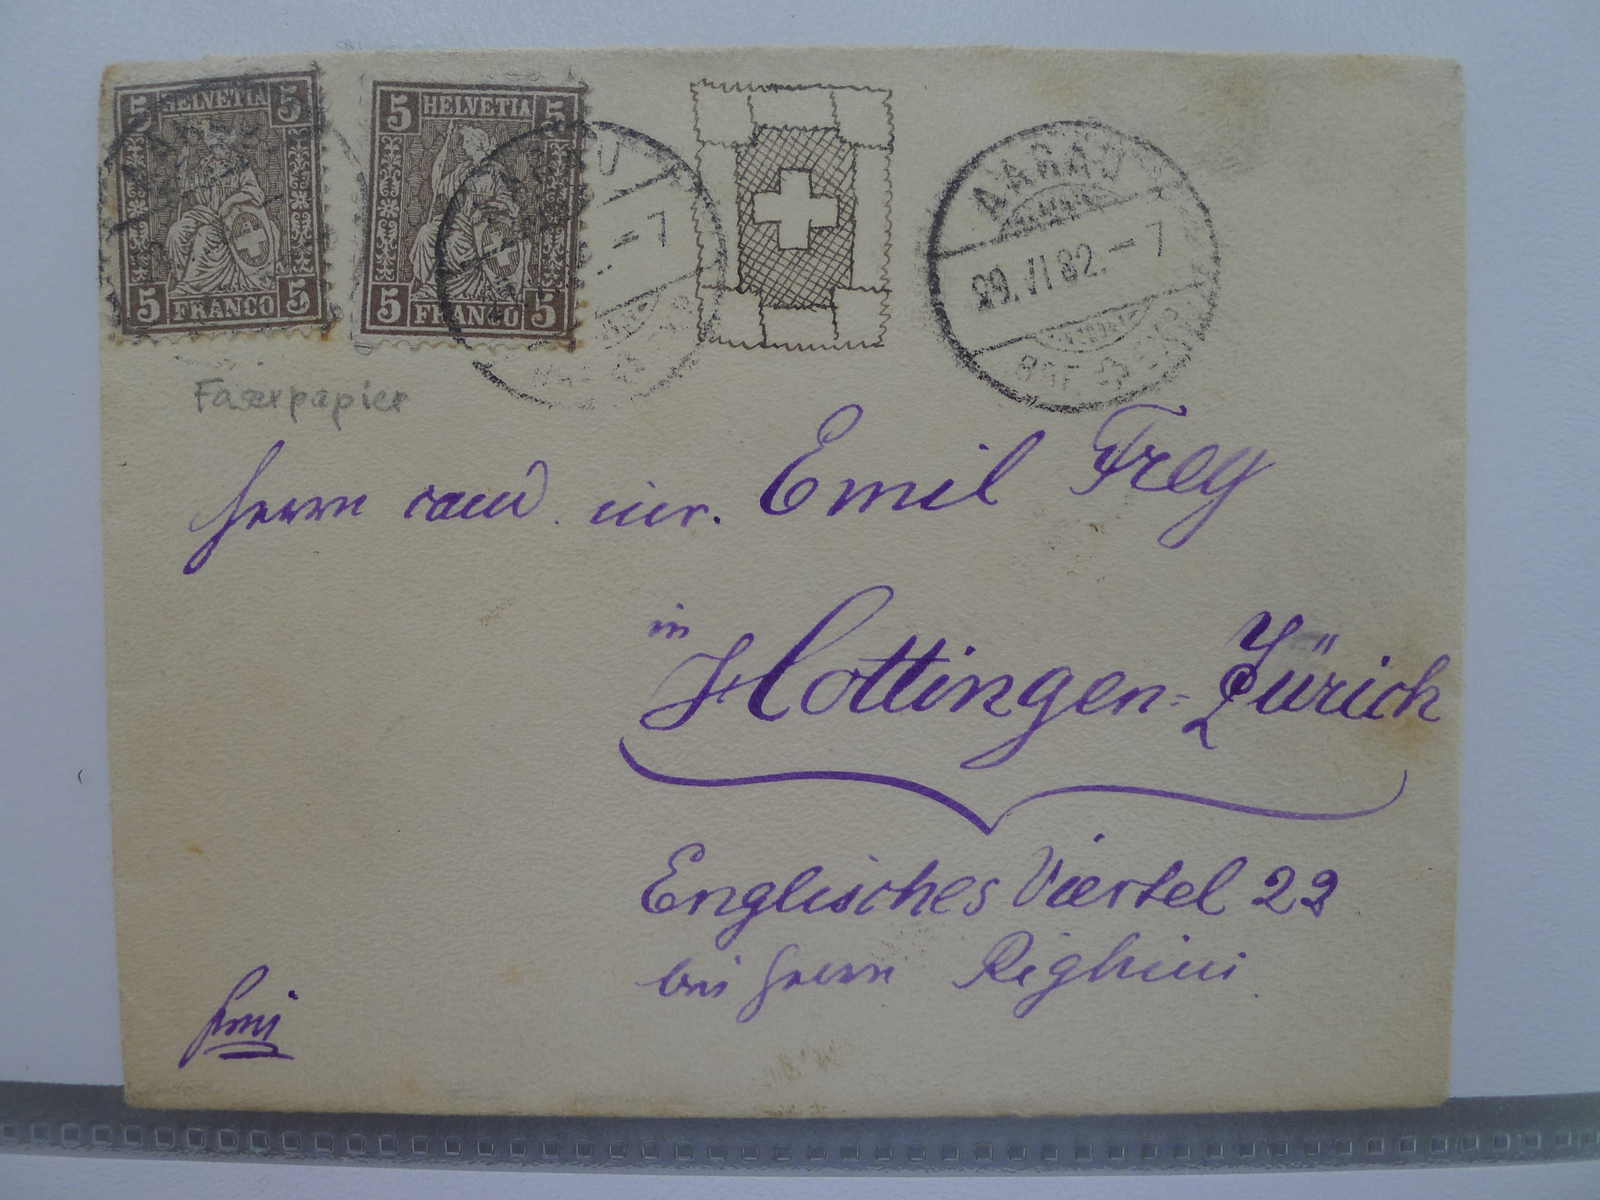 5 HELVETIA 5
5 FRANCO 5
5 HELVETIA 5
5 FRANCO 5
AARAU
– 7
AARAU
29. VI 82. – 7
Faserpapier
Herrn cand. iur. Emil Frey
in
Hottingen-Zürich
Englisches Viertel 22
bei Herrn Righini
frei